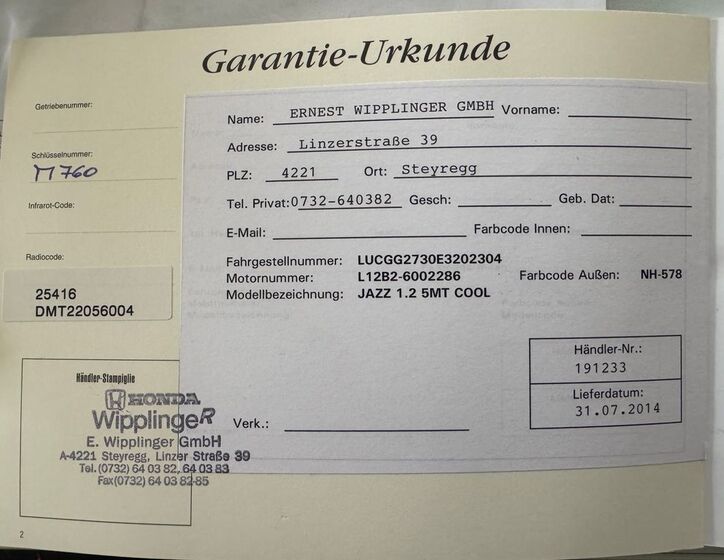 Garantie-Urkunde
Getriebenummer:
Schlüsselnummer:
M760
Infrarot-Code:
Radiocode:
25416
DMT22056004
Name: ERNEST WIPPLINGER GMBH Vorname:
Adresse: Linzerstraße 39
PLZ: 4221 Ort: Steyregg
Tel. Privat: 0732-640382 Gesch: Geb. Dat:
E-Mail: Farbcode Innen:
Fahrgestellnummer: LUCGG2730E3202304
Motornummer: L12B2-6002286 Farbcode Außen: NH-578
Modellbezeichnung: JAZZ 1.2 5MT COOL
Händler-Nr.:
191233
Lieferdatum:
31.07.2014
Verk.:
Händler-Stampiglie
HONDA
WipplingeR
E. Wipplinger GmbH
A-4221 Steyregg, Linzer Straße 39
Tel. (0732) 64 03 82, 64 03 83
Fax (0732) 64 03 82-85
2